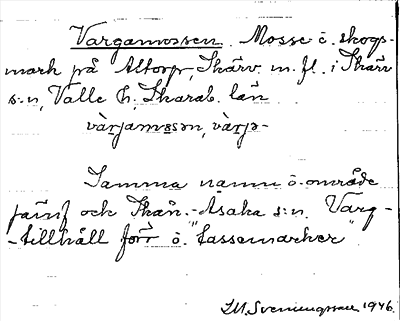 Vargamossen. Mosse o. skogs-
mark på Altorp, Skärv m. fl. i Skärv
s:n, Valle h. Skarab. län
várjamɵsən, várja-
Samma namn o. område
jämf och Skån.-Åsaka s:n. "Varg-
-tillhåll förr o. "tassemarker"
I.M. Svenungsson 1946.